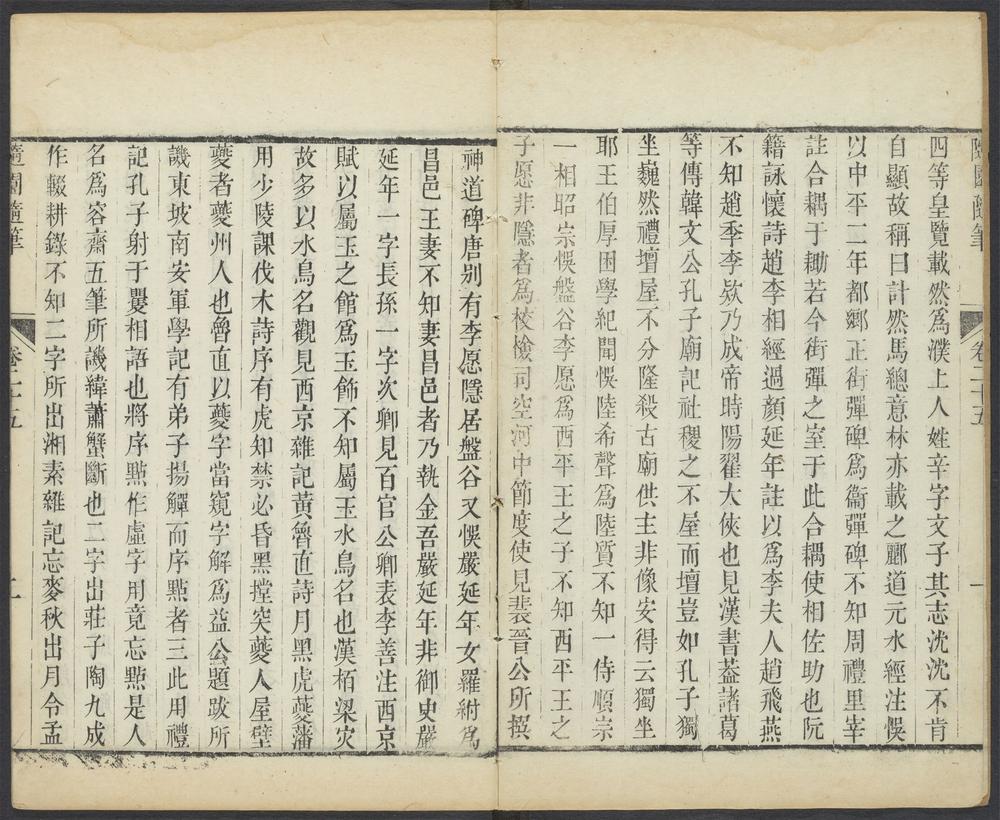 隨園隨筆
卷二十五
一
四等皇覽載然爲濮上人姓辛字文子其志沈沈不肯
自顯故稱曰計然馬總意林亦載之酈道元水經注悞
以中平二年都鄉正街彈碑爲衞彈碑不知周禮里宰
註合耦于耡若今街彈之室于此合耦使相佐助也阮
籍詠懷詩趙李相經過顏延年註以爲李夫人趙飛燕
不知趙季李欵乃成帝時陽翟大俠也見漢書葢諸葛
等傳韓文公孔子廟記社稷之不屋而壇豈如孔子獨
坐巍然禮壇屋不分隆殺古廟供主非像安得云獨坐
耶王伯厚困學紀聞悞陸希聲爲陸質不知一侍順宗
一相昭宗悞盤谷李愿爲西平王之子不知西平王之
子愿非隱者爲校檢司空河中節度使見裴晉公所撰
神道碑唐別有李愿隱居盤谷又悞嚴延年女羅紨爲
昌邑王妻不知妻昌邑者乃執金吾嚴延年非御史嚴
延年一字長孫一字次卿見百官公卿表李善注西京
賦以屬玉之館爲玉飾不知屬玉水鳥名也漢栢梁災
故多以水鳥名觀見西京雜記黃魯直詩月黑虎夔藩
用少陵課伐木詩序有虎知禁必昏黑摚突夔人屋壁
夔者夔州人也魯直以夔字當窺字解爲益公題跋所
譏東坡南安軍學記有弟子揚觶而序點者三此用禮
記孔子射于矍相語也將序點作虛字用竟忘點是人
名爲容齋五筆所譏緯蕭蟹斷也二字出莊子陶九成
作輟耕錄不知二字所出湘素雜記忘麥秋出月令孟
隨園隨筆
卷二十五
二